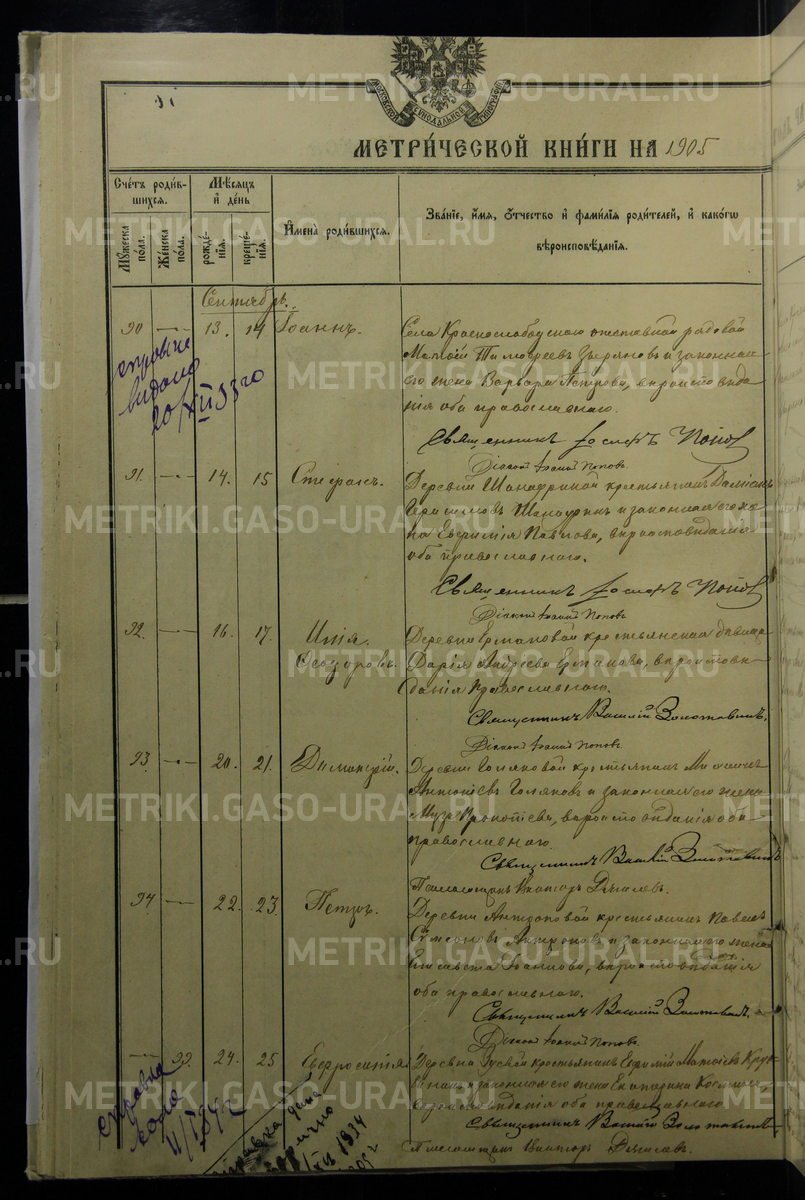 МОСКОВСКОЙ СѴНОДАЛЬНОЙ ТИПОГРАФІИ
МЕТРИ́ЧЕСКОЙ КНИ́ГИ НА 1905
Счетъ роди́вшихся.
Мужеска по́ла.
Же́нска по́ла.
Мѣ́сяцъ и҆ де́нь
рожде́нїѧ.
креще́нїѧ.
И҆мена̀ роди́вшихсѧ.
Зва́нїе, и҆́мѧ, ѻ҆́тчество и҆ фами́лїѧ роди́телей, и҆ како́гѡ
вѣроисповѣ́данїѧ.
Сентябрь.
90 — 13. 14 Іоаннъ.
Села Краснослободского отставной рядовой
Матѳій Тимоѳеевъ Зыряновъ и законная
его жена Варвара Петрова, вѣроисповѣда
нія оба православнаго.
справка
выдана
20/XII 33 го
Священникъ Іосифъ Поповъ
Діаконъ Іоаннъ Поповъ.
91. — 14. 15 Стефанъ.
Деревни крестьянинъ
и законная его же
на Евфимія Павлова, вѣроисповѣданія
оба православнаго.
Священникъ Іосифъ Поповъ
Діаконъ Іоаннъ Поповъ.
92. — 16. 17. Илія.
Ѳеодоровъ.
Деревни Ермаковой крестьянская дѣвица
Дарія Андреева Ермакова, вѣроисповѣ
данія православнаго.
Священникъ Василій Золотавинъ.
Діаконъ Іоаннъ Поповъ.
93 — 20. 21. Димитрій.
Деревни Голяковой крестьянинъ
Голяковъ и законная его жена
вѣроисповѣданія оба
православнаго.
Священникъ Василій Золотавинъ
Псаломщикъ Викторъ
94 — 22. 23. Петръ.
Деревни Антроповой крестьянинъ Павелъ
Семеновъ Антроповъ и законная его жена
Елисавета Іоаннова, вѣроисповѣданія
оба православнаго.
Священникъ Василій Золотавинъ.
Діаконъ Іоаннъ Поповъ.
— 93. 24. 25 Евфросинія
Деревни Гуевой крестьянинъ Евфимій Матѳіевъ
и законная его жена Екатерина
вѣроисповѣданія оба православнаго.
Священникъ Василій Золотавинъ
Псаломщикъ Викторъ
справка
справка дана
1934
METRIKI.GASO-URAL.RU